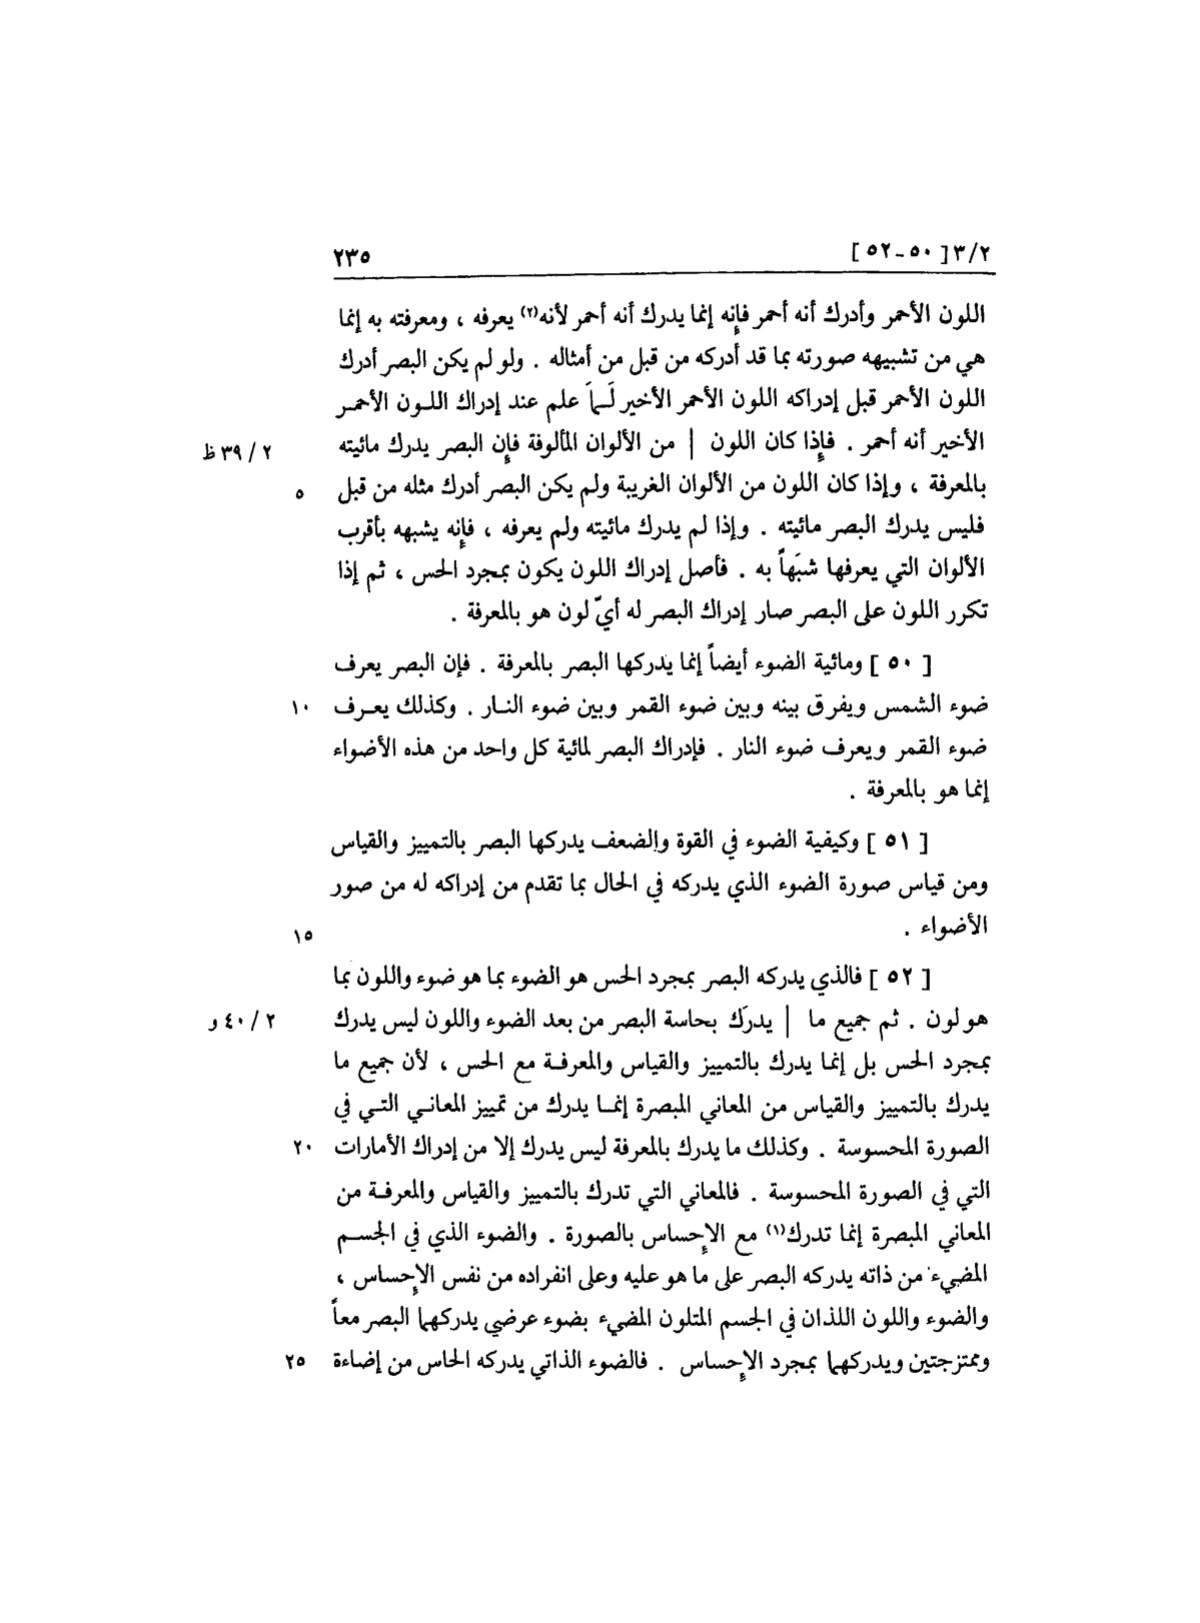 ٣/٢ [ ٥٠ - ٥٢ ] ٢٣٥
اللون الأحمر وأدرك أنه أحمر فإنه إنما يدرك أنه أحمر لأنه(٢) يعرفه ، ومعرفته به إنما
هي من تشبيهه صورته بما قد أدركه من قبل من أمثاله . ولو لم يكن البصر أدرك
اللون الأحمر قبل إدراكه اللون الأحمر الأخير لَـمـاَ علم عند إدراك اللـون الأحمـر
الأخير أنه أحمر . فإذا كان اللون | من الألوان المألوفة فإن البصر يدرك مائيته ٢ / ٣٩ ظ
بالمعرفة ، وإذا كان اللون من الألوان الغريبة ولم يكن البصر أدرك مثله من قبل ٥
فليس يدرك البصر مائيته . وإذا لم يدرك مائيته ولم يعرفه ، فإنه يشبهه بأقرب
الألوان التي يعرفها شبَهاً به . فأصل إدراك اللون يكون بمجرد الحس ، ثم إذا
تكرر اللون على البصر صار إدراك البصر له أيّ لون هو بالمعرفة .
[ ٥٠ ] ومائية الضوء أيضاً إنما يدركها البصر بالمعرفة . فإن البصر يعرف
ضوء الشمس ويفرق بينه وبين ضوء القمر وبين ضوء النـار . وكذلك يعـرف ١٠
ضوء القمر ويعرف ضوء النار . فإدراك البصر لمائية كل واحد من هذه الأضواء
إنما هو بالمعرفة .
[ ٥١ ] وكيفية الضوء في القوة والضعف يدركها البصر بالتمييز والقياس
ومن قياس صورة الضوء الذي يدركه في الحال بما تقدم من إدراكه له من صور
الأضواء . ١٥
[ ٥٢ ] فالذي يدركه البصر بمجرد الحس هو الضوء بما هو ضوء واللون بما
هو لون . ثم جميع ما | يدرَك بحاسة البصر من بعد الضوء واللون ليس يدرك ٢ / ٤٠ و
بمجرد الحس بل إنمـا يدرك بالتمييز والقياس والمعرفـة مع الحس ، لأن جميع ما
يدرك بالتمييز والقياس من المعاني المبصرة إنمـا يدرك من تمييز المعانـي التـي في
الصورة المحسوسة . وكذلك ما يدرك بالمعرفة ليس يدرك إلا من إدراك الأمارات ٢٠
التي في الصورة المحسوسة . فالمعاني التي تدرك بالتمييز والقياس والمعرفـة من
المعاني المبصرة إنما تدرك(١) مع الإحساس بالصورة . والضوء الذي في الجسـم
المضيء من ذاته يدركه البصر على ما هو عليه وعلى انفراده من نفس الإحساس ،
والضوء واللون اللذان في الجسم المتلون المضيء بضوء عرضي يدركهما البصر معاً
وممتزجتين ويدركهما بمجرد الإحساس . فالضوء الذاتي يدركه الحاس من إضاءة ٢٥